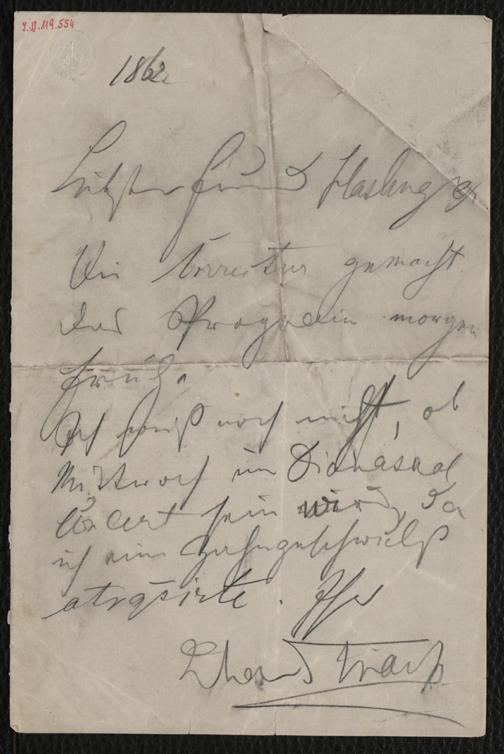 I.N.119.554
1862
Liebster Freund Haslinger
Die Correctur gemacht
Das Programm morgen
früh.
Ich weiß noch nicht, ob
Mittwoch im Dianasaal
Concert sein wird, da
ich eine Zahngeschwulst
atrasirte. Ihr
Eduard Strauß